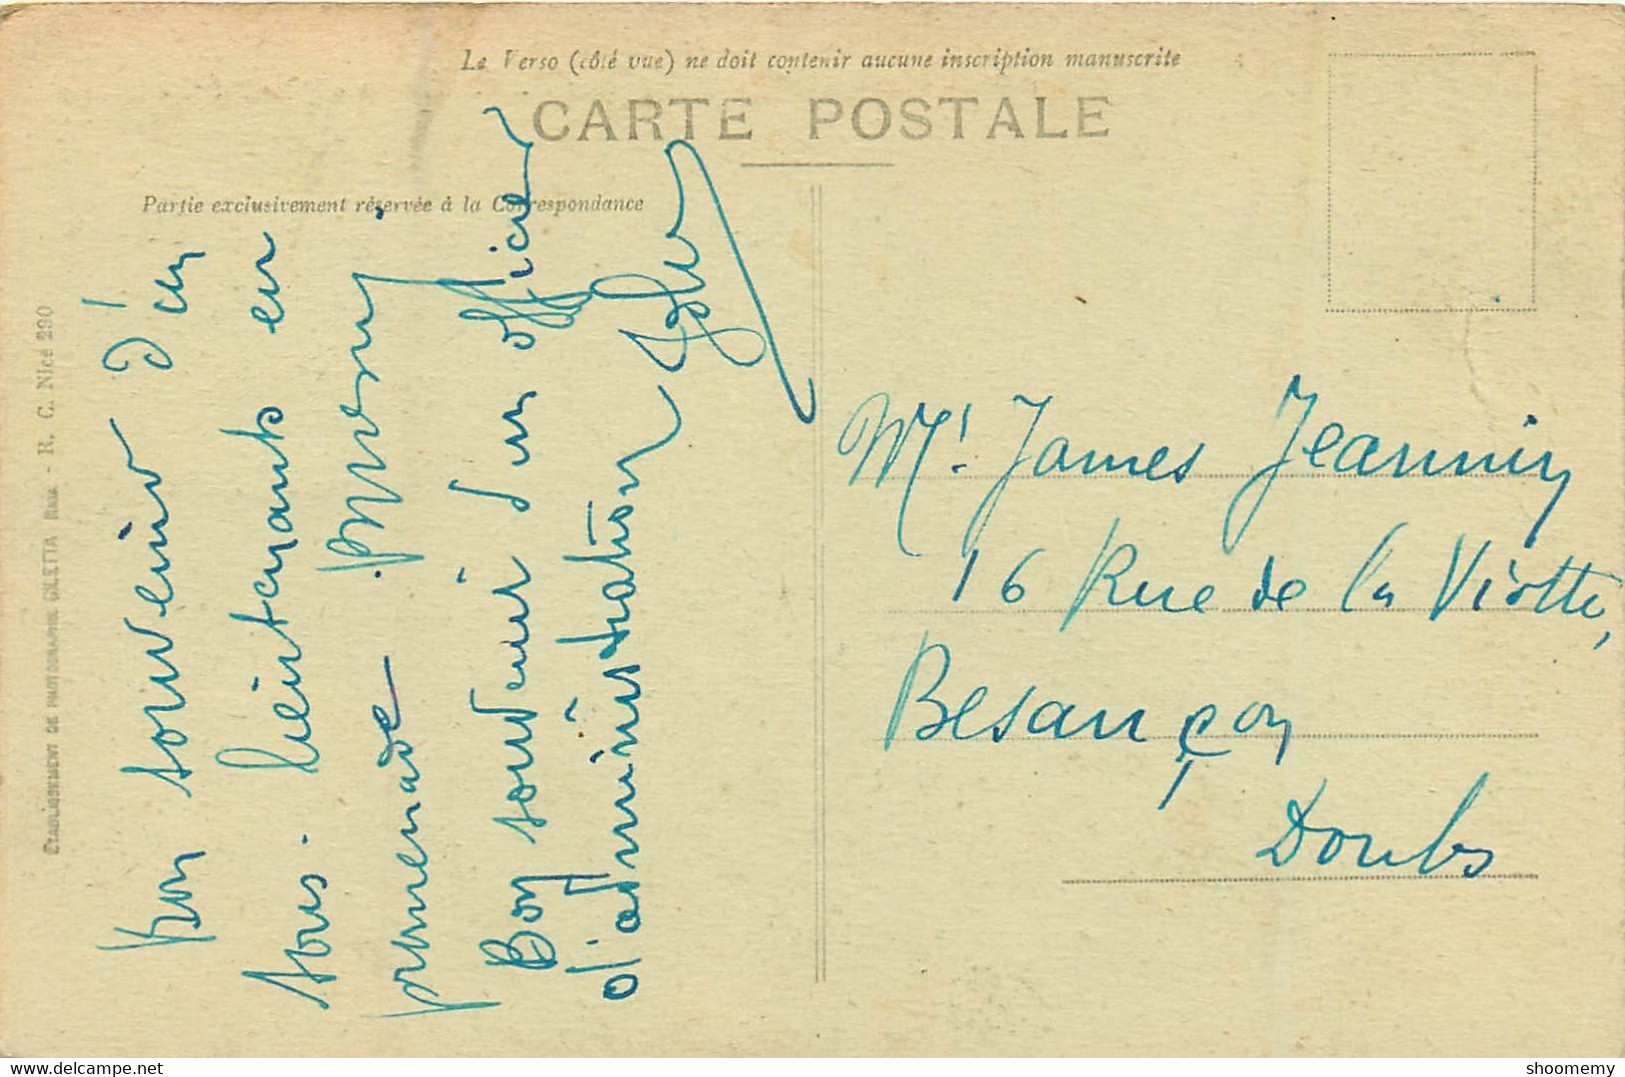 Le Verso (côté vue) ne doit contenir aucune inscription manuscrite
CARTE POSTALE
Partie exclusivement réservée à la Correspondance
ÉTABLISSEMENT DE PHOTOGRAPHIE GILETTA - R. C. Nice 290
Bon souvenir d'un
sous-lieutenant en
promenade
Bon souvenir d'un officier
d'administration
Mr. James Jeannin
16 Rue de la Viotte,
Besançon
Doubs
delcampe.net
shoomemy